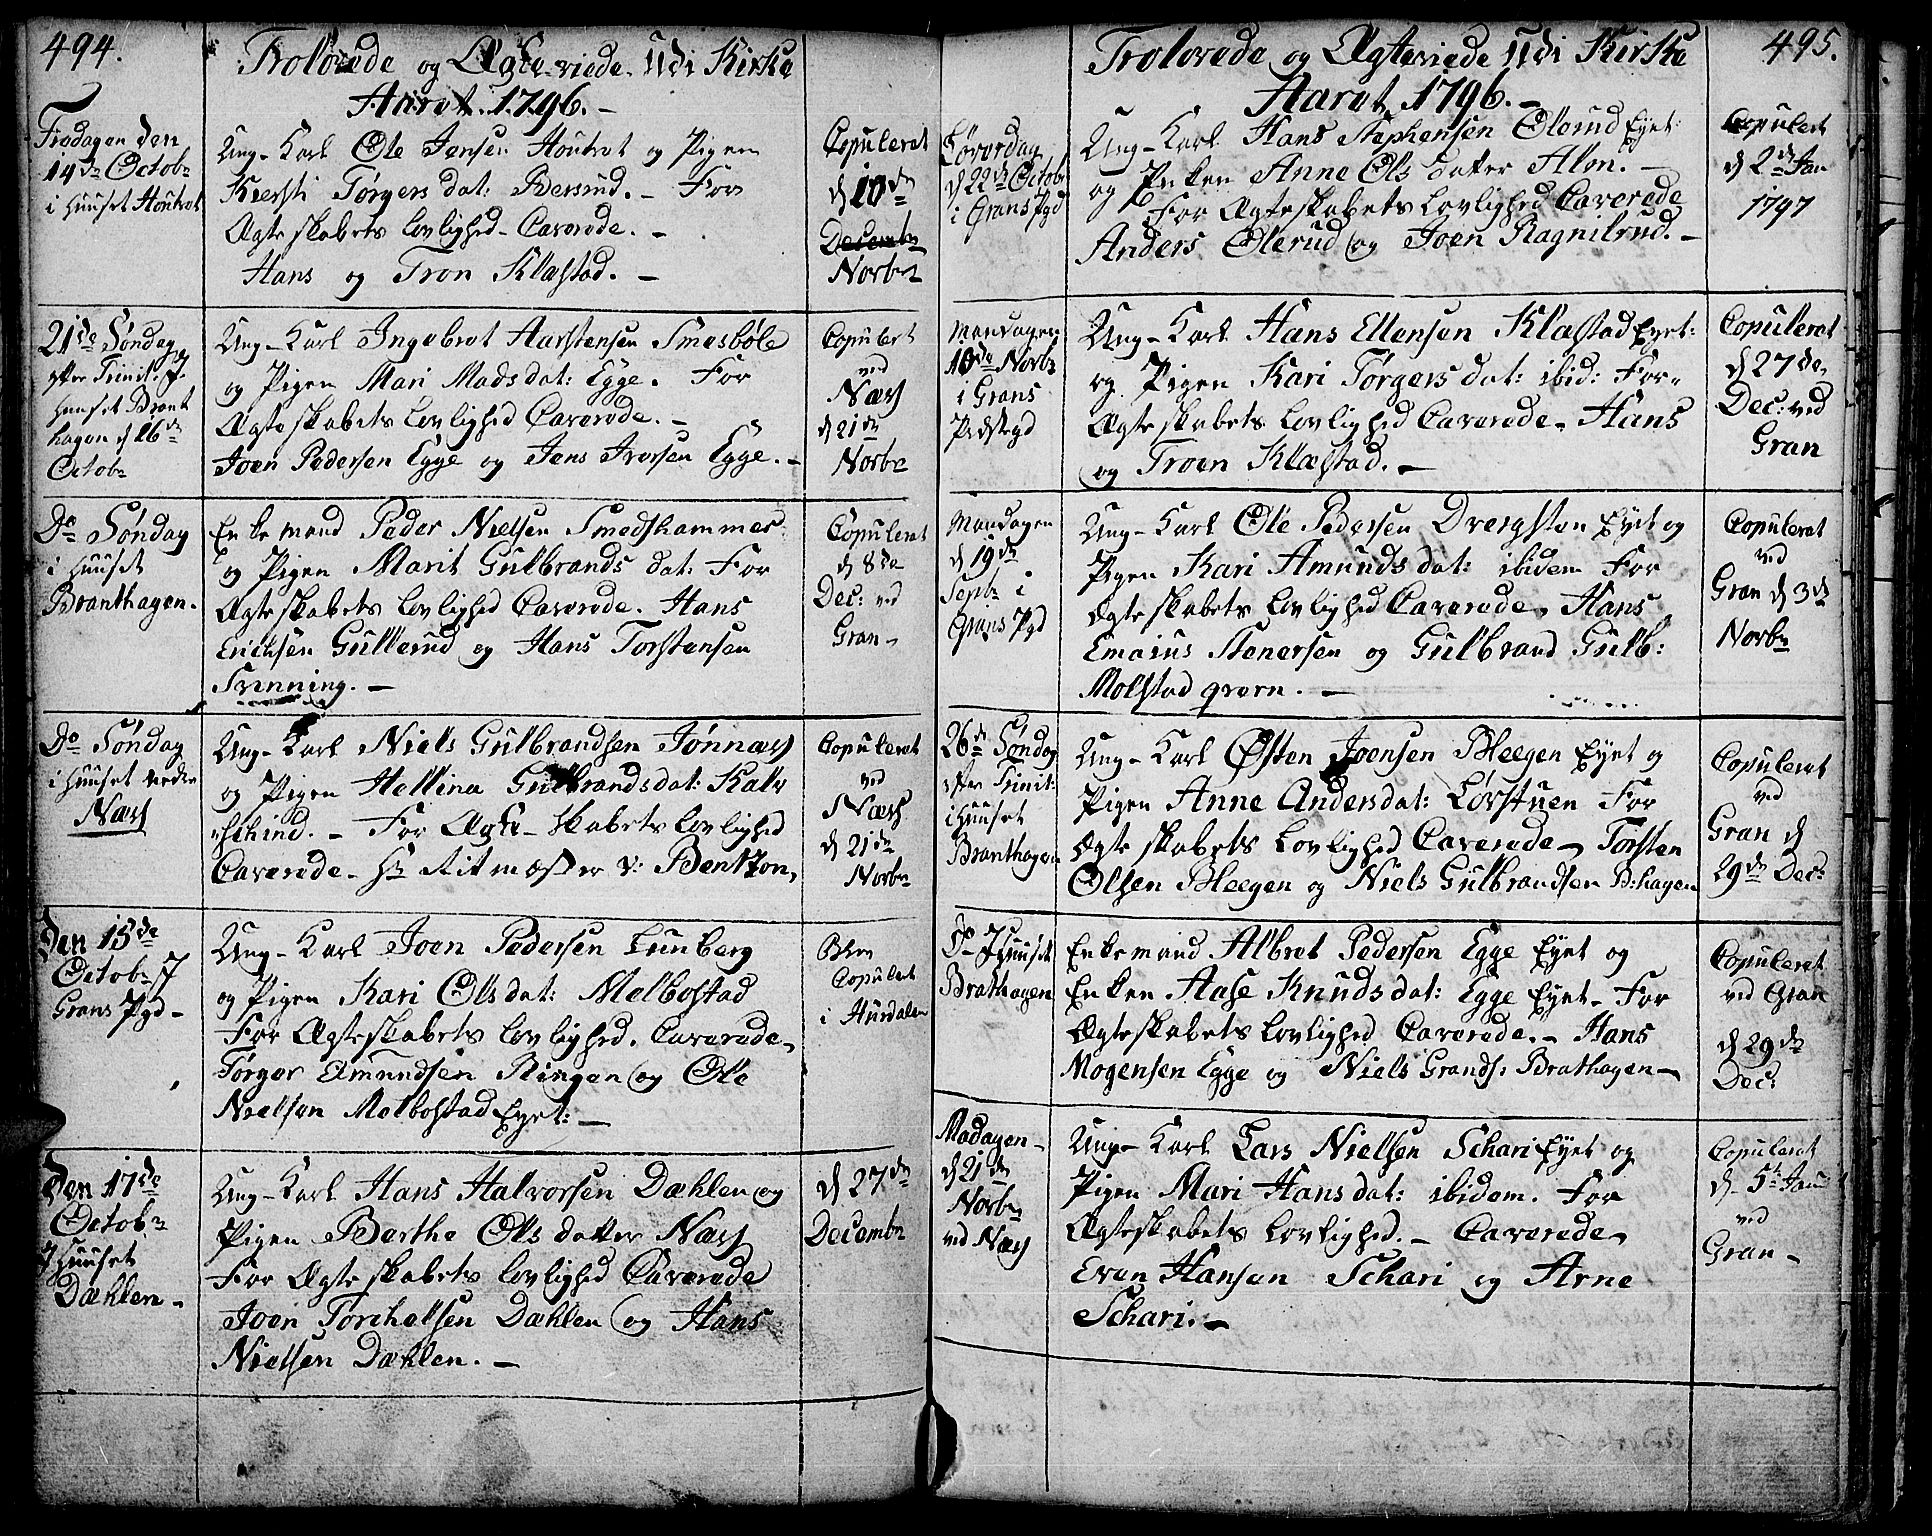 494.
Trolovede og Ægteviede Udi Kirke
Aaret 1796.-
Fredagen den
14de Octobr
i Huuset Houtvet
Ung-Karl Ole Jensen Houtvet og Pigen
Kiersti Törgersdat: Bersrud.- For
Ægteskabets Lovlighed Caverede.-
Hans og Tron Klæstad.-
Copuleret
d 10de
Decembr
Novbr
21de Søndag
efter Trinit: J
Huuset Brant
hagen d 16de
Octobr
Ung-Karl Ingebret Aarstensen Smesböle
og Pigen Mari Madsdat: Egge. For
Ægteskabets Lovlighed Caverede.-
Joen Pedersen Egge og Jens Iversen Egge.-
Copulert
ved
Næss
d 21de
Novbr
Do Søndag
i Huuset
Branthagen.
Enkemand Peder Nielsen Smedshammer
og Pigen Marit Gulbrandsdat: For
Ægteskabets Lovlighed Caverede. Hans
Erichsen Gullerud og Hans Torstensen
Svenning.-
Copuleret
d 8de
Dec: ved
Gran-
Do Søndag
i Huuset
Næss
Ung-Karl Niels Gulbrandsen Tönnæss
og Pigen Hellina Gulbrandsdat: Kalv
schind.- For Ægte-skabets Lovlighed
Caverede- Hr Ritmæster v: Bentzon,
Copuleret
ved
Næss
d 21de
Novbr
Den 15de
Octobr J
Grans Pgd-
Ung-Karl Joen Pedersen Lunberg
og Pigen Kari Olsdat: Melbostad
For Ægteskabets Lovlighed. Caverede-
Törger Amundsen Ringen og Ole
Nielsen Melbostad Eyet:-
Blev
Copulert
i Hurdalen
Den 17de
Octobr
J Huuset
Dæhlen-
Ung-Karl Hans Halvorsen Dæhlen og
Pigen Berthe Olsdatter Næss
For Ægteskabets Lovlighed Caverede
Joen Torchelsen Dæhlen og Hans
Nielsen Dæhlen.-
d 27de
Decembr
495.
Trolovede og Ægteviede Udi Kirke
Aaret 1796.-
Löverdag
d 22de Octobr
i Grans Pgd
Ung-Karl Hans Stephensen Ölerud Eyet:
og Enken Anne Olsdatter Alm.-
For Ægteskabets Lovlighed Caverede
Anders Ölerud og Joen Ragnilrud.-
Copulert
d 2de Jan
1797
Mandagen
10de Novbr
i Grans
Pdstegd
Ung-Karl Hans Ellensen Klæstad Eyet:
og Pigen Kari Törgersdat: ibid: For-
Ægteskabets Lovlighed Caverede- Hans
og Troen Klæstad.-
Copuleret
d 27de
Dec: ved
Gran
Mandagen
d 19de
Septbr i
Grans Pgd
Ung-Karl Ole Pedersen Dvergsten Eyet og
Pigen Kari Amundsdat: ibidem For
Ægteskabets Lovlighed Caverede- Hans
Emaius Stenersen og Gulbrand Gulb:
Molstad qvern.-
Copuleret
ved
Gran d 3de
Novbr
26de Søndag
efter Trinit:
i Huuset
Branthagen
Ung-Karl Østen Joensen Bleegen Eyet og
Pigen Anne Andersdat: Lörstuen For
Ægteskabets Lovlighed Caverede- Torsten
Olsen Bleegen og Niels Gulbrandsen B:hagen
Copuleret
ved
Gran d
29de Dec:
Do J Huuset
Brathagen
Enkemand Albret Pedersen Egge Eyet og
Enken Aase Knudsdat: Egge Eyet- For
Ægteskabets Lovlighed Caverede.- Hans
Mogensen Egge og Niels Grands: Brathagen-
Copuleret
ved Gran
d 29de
Dec:
Madagen-
d 21de
Novbr
ved Næss
Ung-Karl Lars Nielsen Schari Eyet og
Pigen Mari Hansdat: ibidem. For
Ægteskabets Lovlighed.- Caverede-
Even Hansen Schari og Arne
Schari.-
Copuleret
d- 5te Jan
ved
Gran-